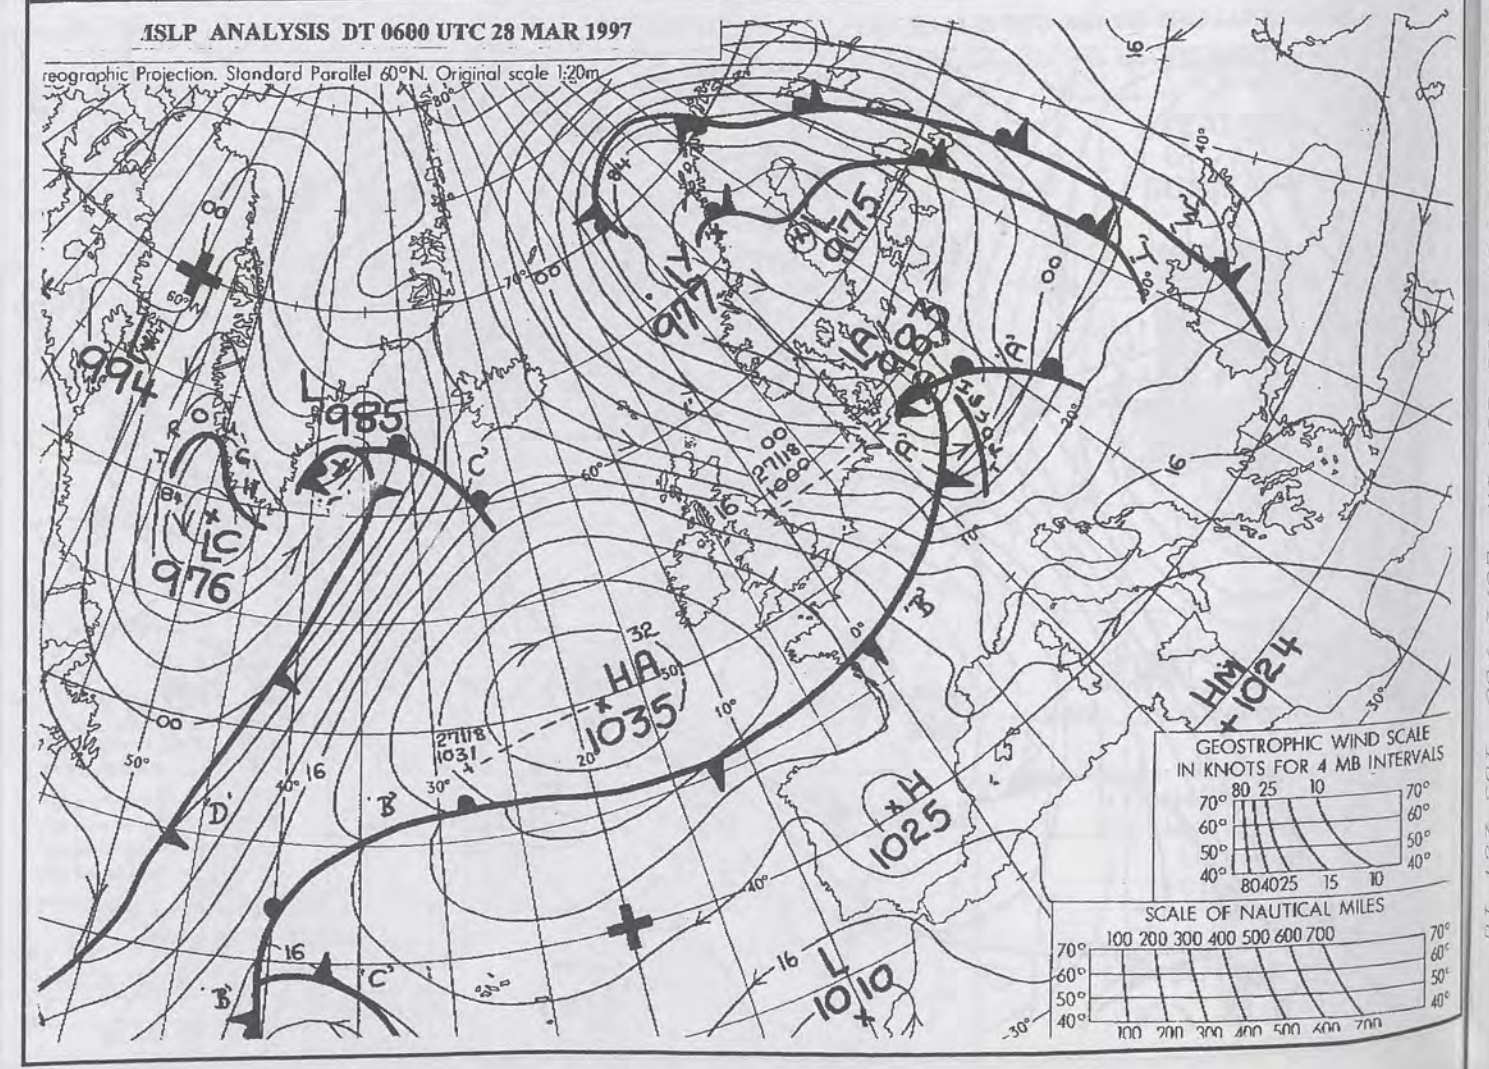 MSLP ANALYSIS DT 0600 UTC 28 MAR 1997
reographic Projection. Standard Parallel 60°N. Original scale 1:20m
80°
16
40°
84
L
975
00
70°
00
L
977
00
60°N
994
LA
983
'A'
20°
L
985
'C'
T
R
O
U
G
H
84
LC
976
60°
00
27118
1000
16
'A'
T
R
O
U
G
H
16
10°
'B'
0°
32
HA
50°
1035
HM
1024
30°
00
50°
27118
1031
20°
10°
40°
16
30°
'D'
'B'
H
1025
40°
16
'B'
'C'
16
L
1010
30°
GEOSTROPHIC WIND SCALE
IN KNOTS FOR 4 MB INTERVALS
80 25 10
70° 70°
60° 60°
50° 50°
40° 40°
80 40 25 15 10
SCALE OF NAUTICAL MILES
100 200 300 400 500 600 700
70° 70°
60° 60°
50° 50°
40° 40°
100 200 300 400 500 600 700